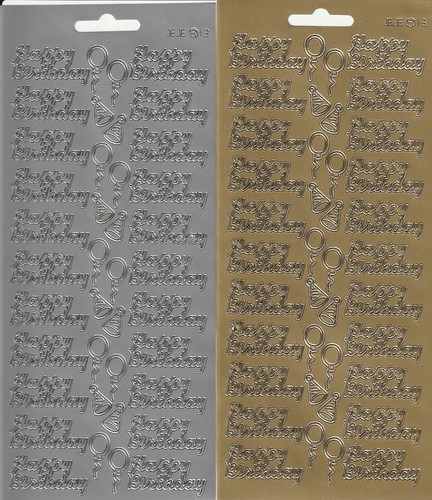 JEJE
Happy
Birthday
Happy
Birthday
Happy
Birthday
Happy
Birthday
Happy
Birthday
Happy
Birthday
Happy
Birthday
Happy
Birthday
Happy
Birthday
Happy
Birthday
Happy
Birthday
Happy
Birthday
Happy
Birthday
Happy
Birthday
Happy
Birthday
Happy
Birthday
Happy
Birthday
Happy
Birthday
Happy
Birthday
Happy
Birthday
Happy
Birthday
Happy
Birthday
JEJE
Happy
Birthday
Happy
Birthday
Happy
Birthday
Happy
Birthday
Happy
Birthday
Happy
Birthday
Happy
Birthday
Happy
Birthday
Happy
Birthday
Happy
Birthday
Happy
Birthday
Happy
Birthday
Happy
Birthday
Happy
Birthday
Happy
Birthday
Happy
Birthday
Happy
Birthday
Happy
Birthday
Happy
Birthday
Happy
Birthday
Happy
Birthday
Happy
Birthday